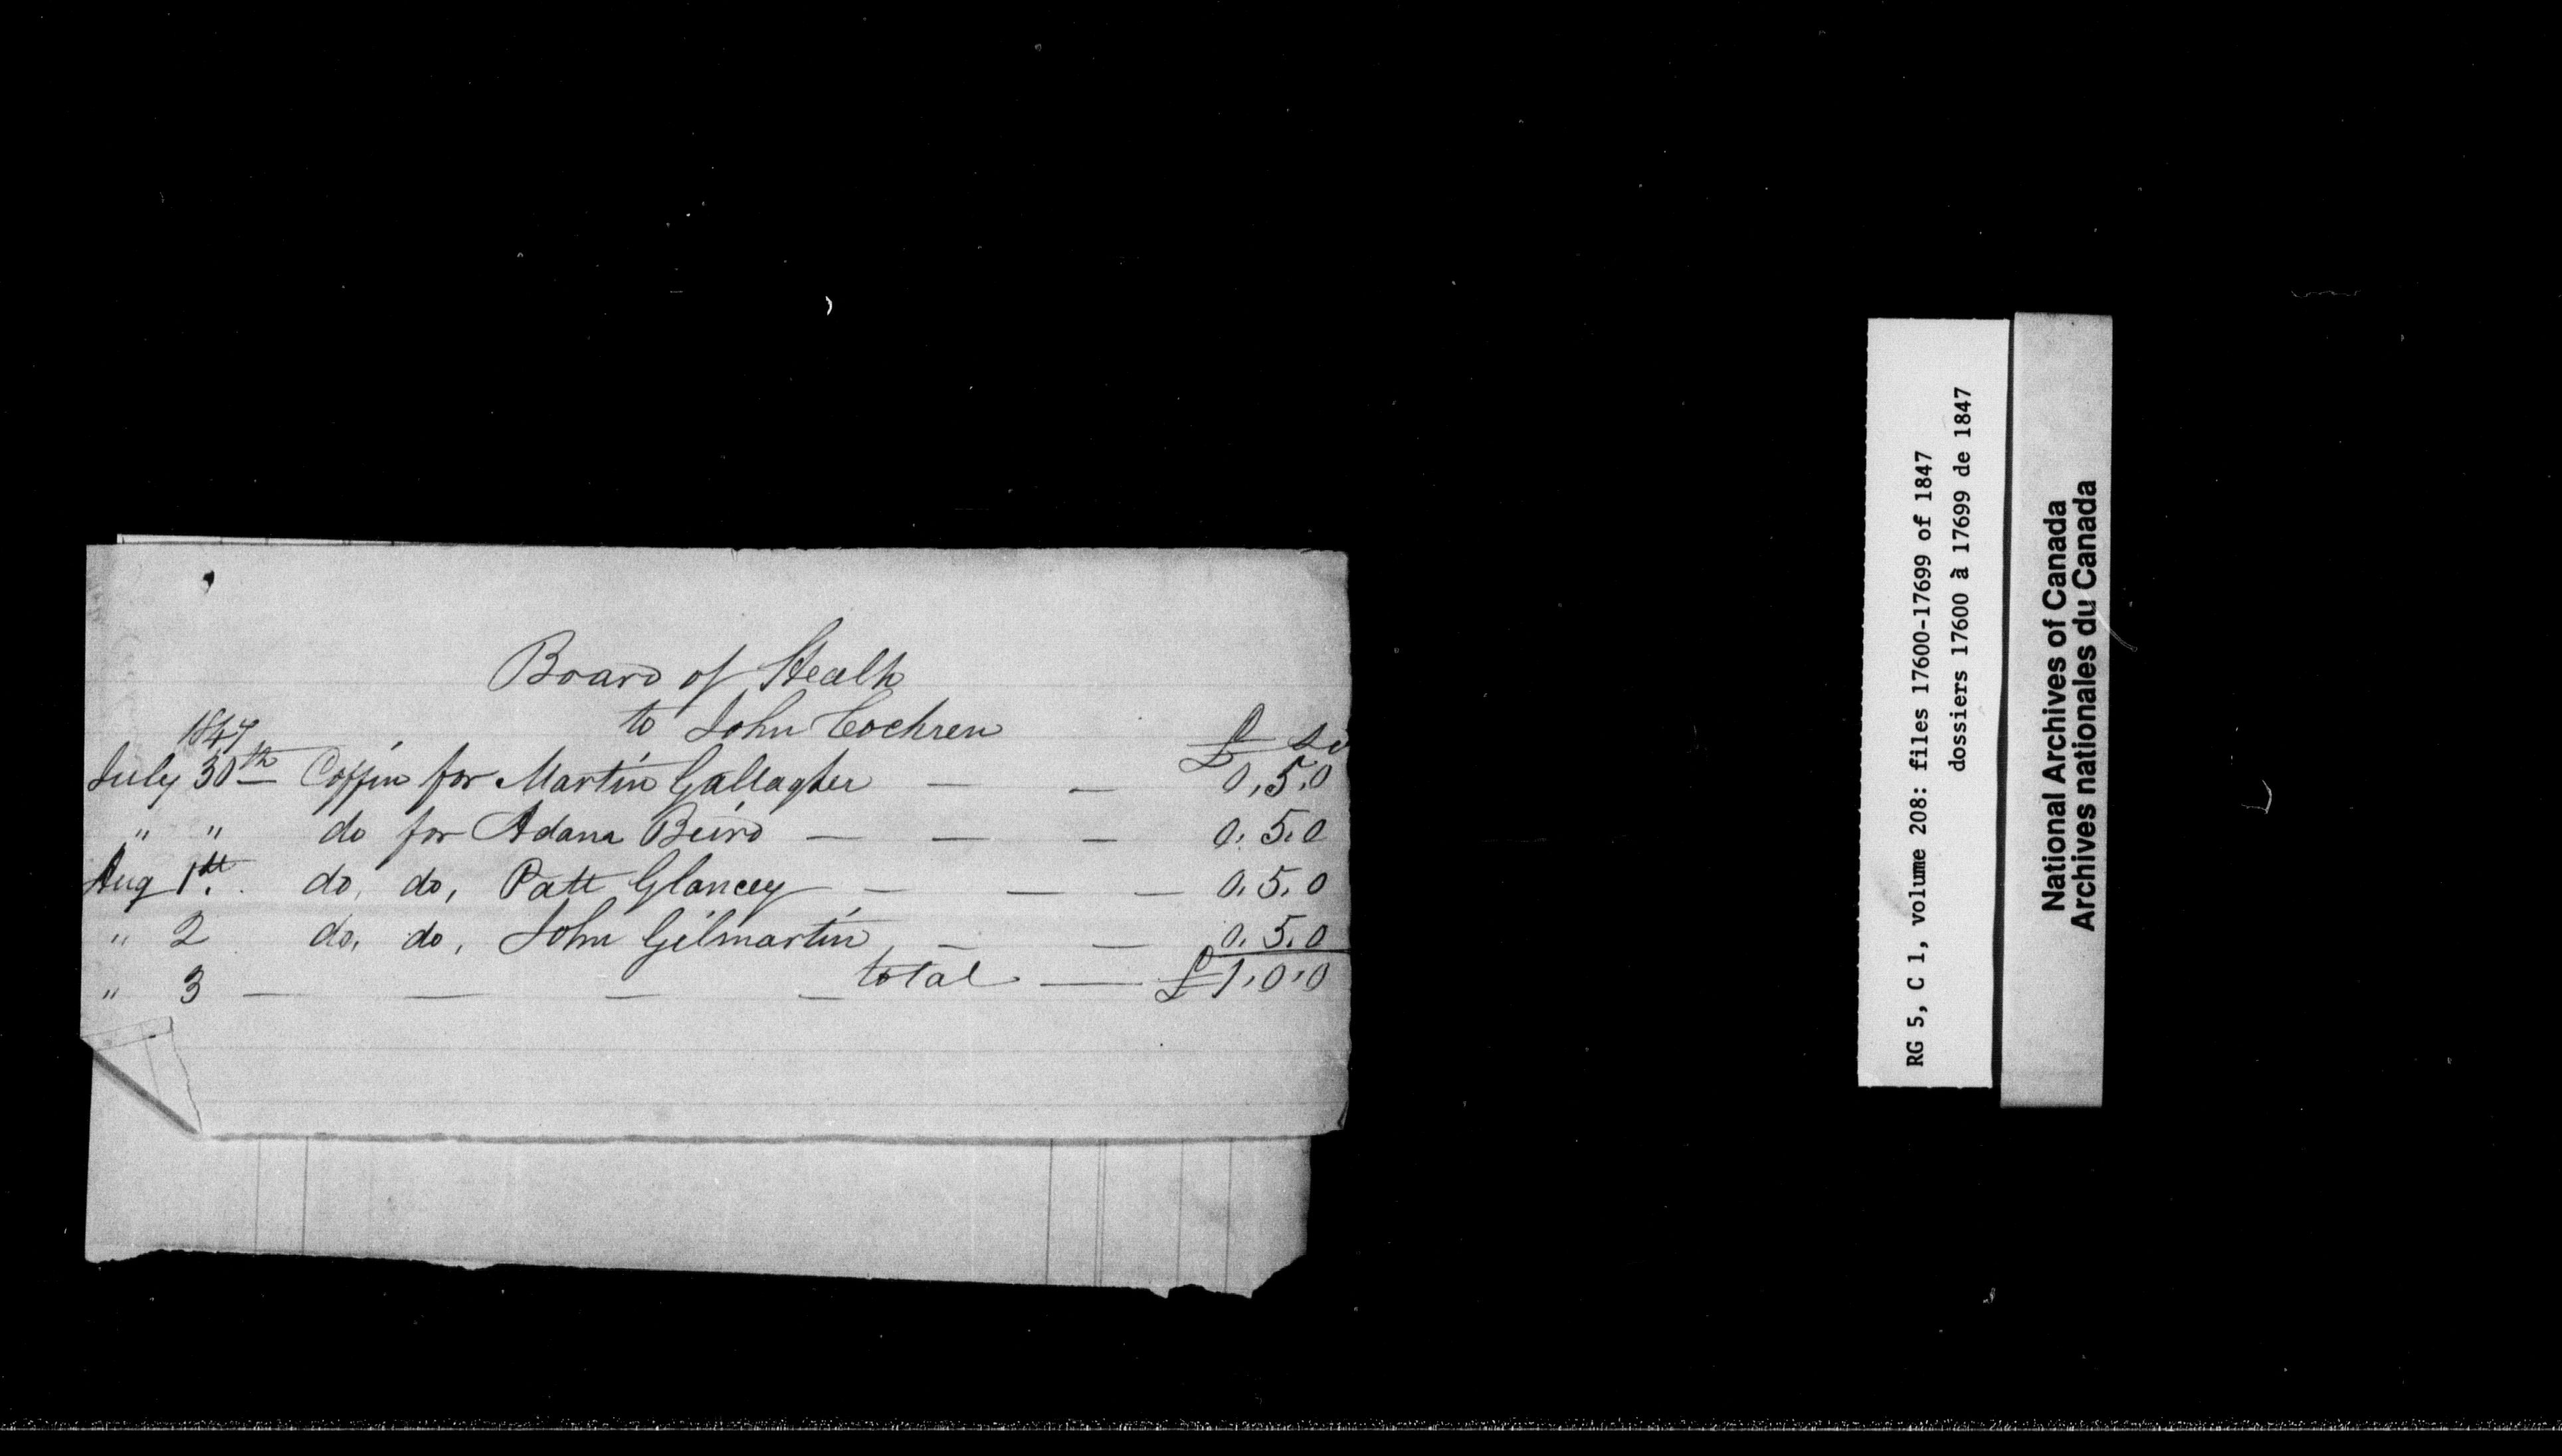 Board of Health
to John Cochren
1847 £ s d
July 30th Coffin for Martin Gallagher — — 0,5,0
" " do for Adam Beird — — — 0,5,0
Aug 1st. do, do, Patt Glancey — — — 0,5,0
" 2 do, do, John Gilmartin, — — 0,5,0
" 3 — — — — total — £1,0,0
RG 5, C 1, volume 208: files 17600-17699 of 1847
dossiers 17600 à 17699 de 1847
National Archives of Canada
Archives nationales du Canada